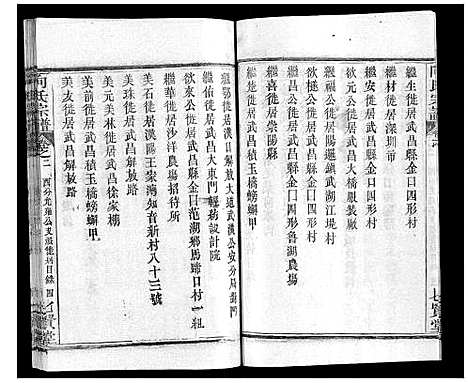 繼生徙居武昌縣金口四形村
繼材徙居深圳市
繼安徙居武昌縣金口四形村
欲元徙居武昌大橋服裝厰
欲極徙居武昌縣武湖江堤村
欲公徙居武昌縣金口四形魯湖農場
繼善徙居崇陽縣
繼楚徙居武昌積玉橋螃蟹甲
七賢堂
繼鄂徙居漢口解放大道武漢公安分局對門
繼伯徙居武昌大東門輕紡設計院
欲來公徙居武昌縣金口范湖鄉馬蹄口村一組
繼華徙居沙洋農場招待所
美石徙居漢陽王家灣知音新村八十三號
美元美林徙居武昌徐家棚
美珠徙居武昌解放路
美前徙居武昌積玉橋螃蟹甲
美友徙居武昌解放路
向氏宗譜
卷三 西分允雍公支嚴徙居目錄 四